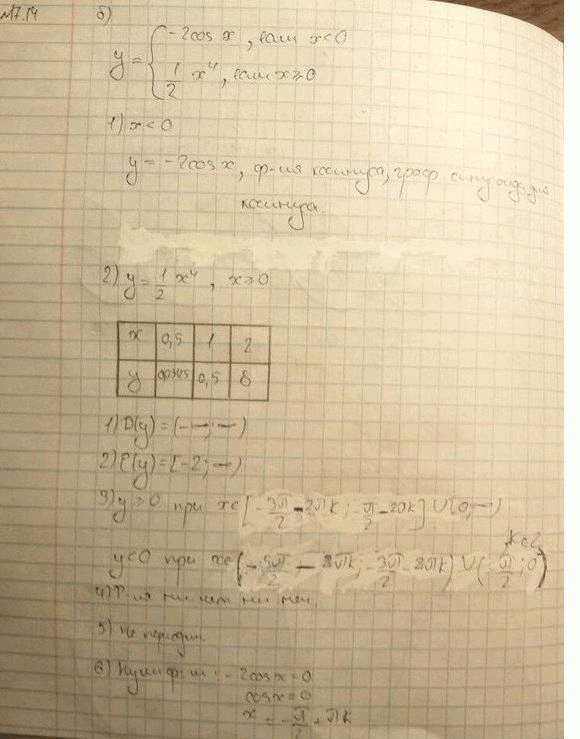 №17.14 б)
y = { -2cos x, если x<0
1/2 x⁴, если x≥0
1) x<0
y = -2cos x, ф-ия косинуса, граф синусоида для
косинуса.
2) y = 1/2 x⁴, x≥0
x 0,5 1 2
y 0,03125 0,5 8
1) D(y) = (-∞; ∞)
2) E(y) = [-2; ∞)
3) y≥0 при x∈[-3π/2 - 2πk; -π/2 - 2πk] ∪ (0; ∞)
, k∈Z
y<0 при x∈(-5π/2 - 2πk; -3π/2 - 2πk) ∪ (-π/2; 0)
4) Ф-ия ни чет ни неч.
5) Не периодич.
6) Нули ф-ии: -2cos x = 0
cos x = 0
x = -π/2 + πk